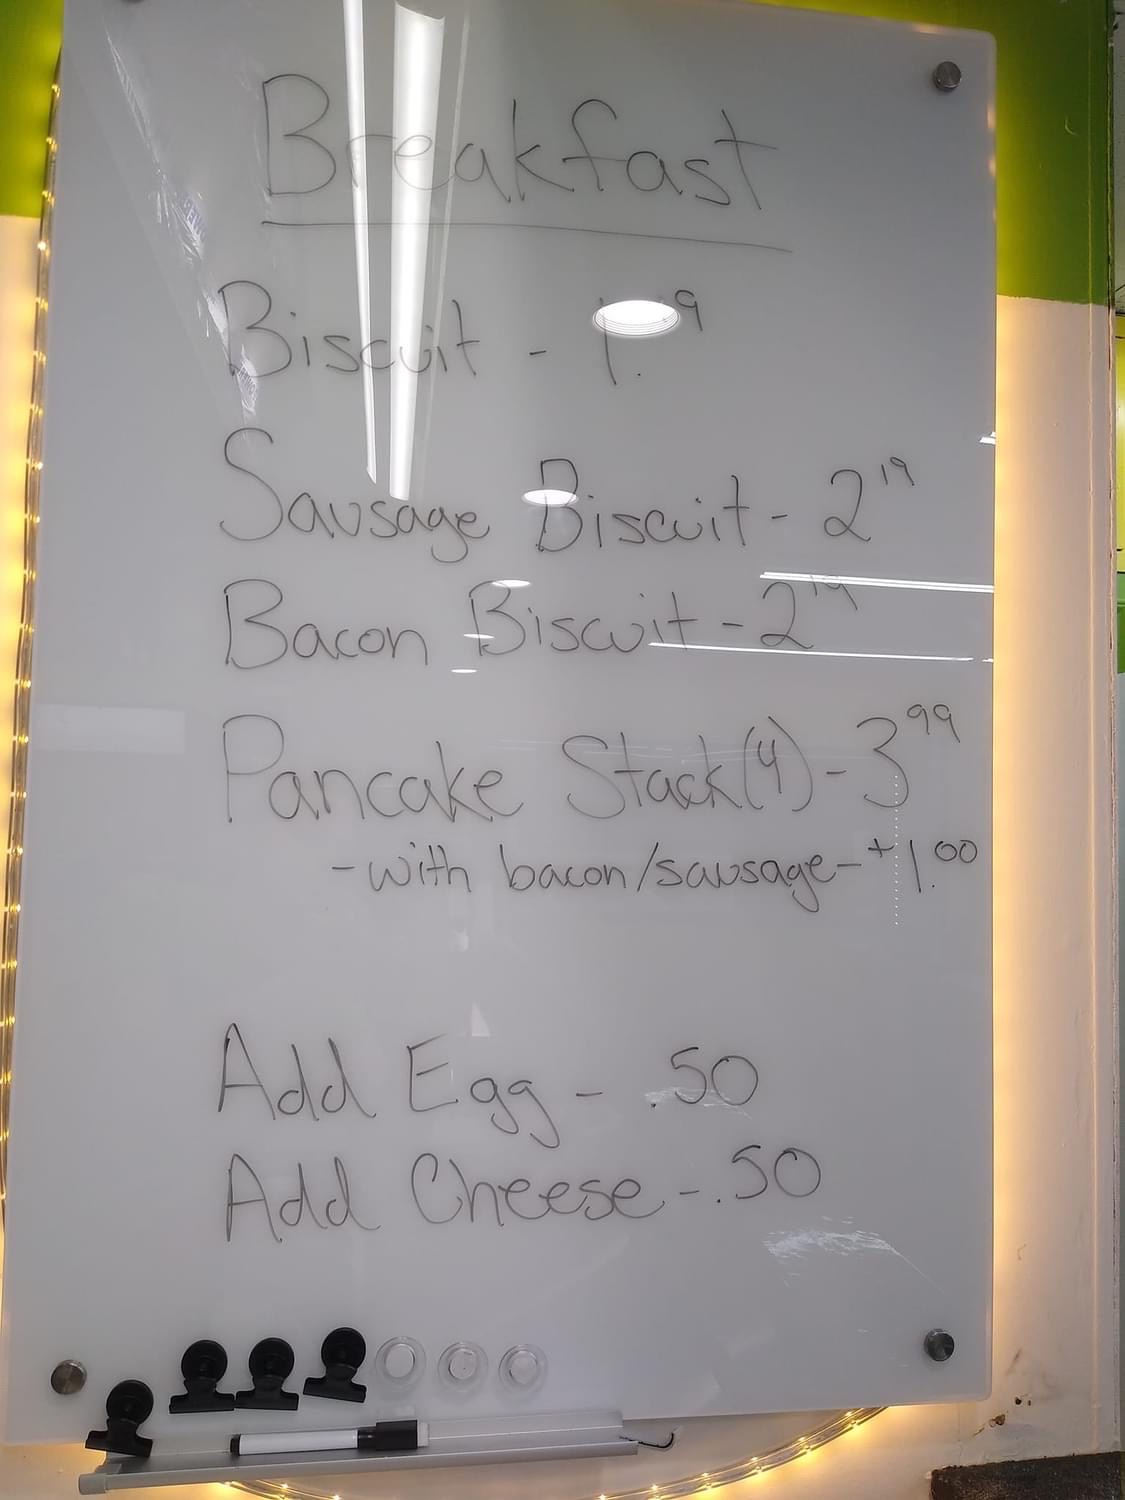 Breakfast
Biscuit - 1.
Sausage Biscuit - 2 19
Bacon Biscuit - 2 19
Pancake Stack (4) - 3 99
- with bacon/sausage - +1.00
Add Egg - .50
Add Cheese - .50